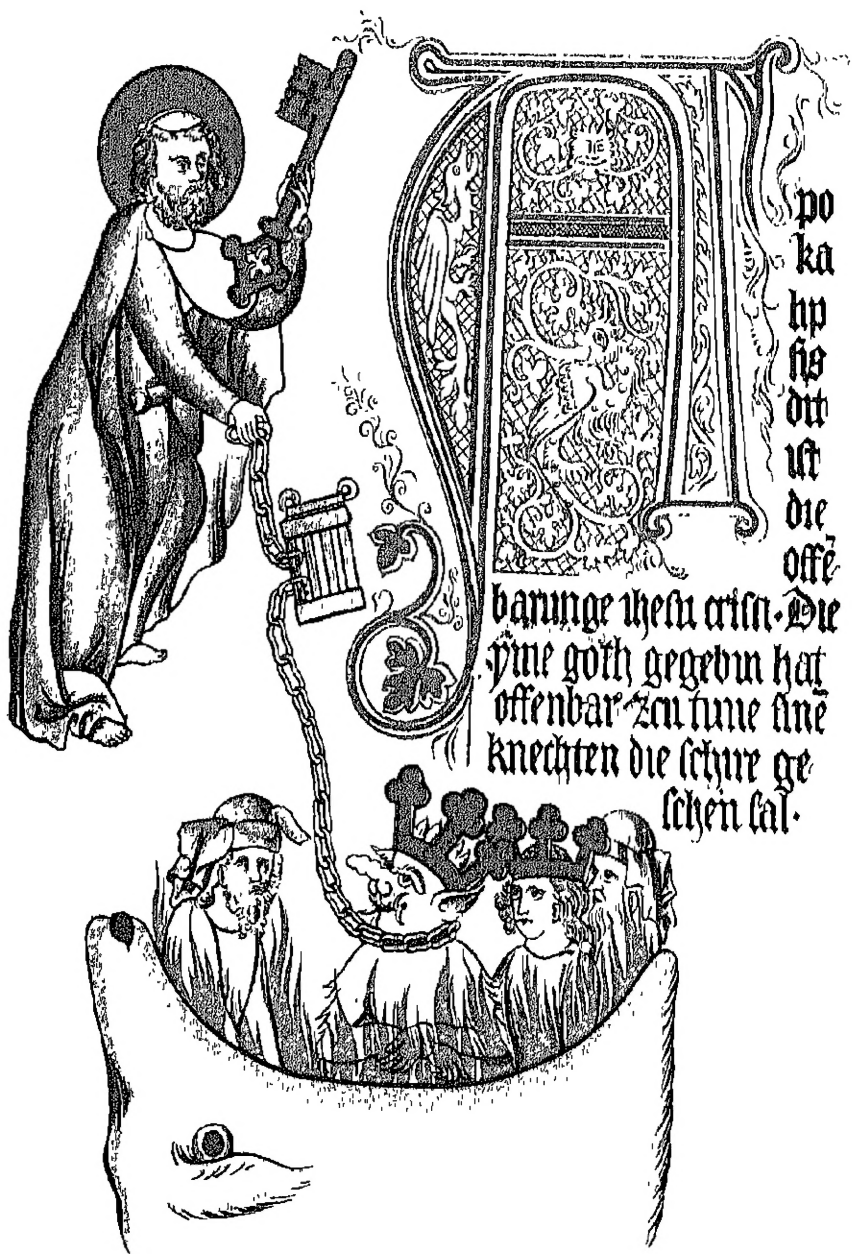 A
po
ka
lip
ſis
dit
iſt
die
offē-
barunge iheſu criſti. Die
yme goth gegebin hat
offenbar zcu tune ſinē
knechten die ſchire ge-
ſchen ſal.